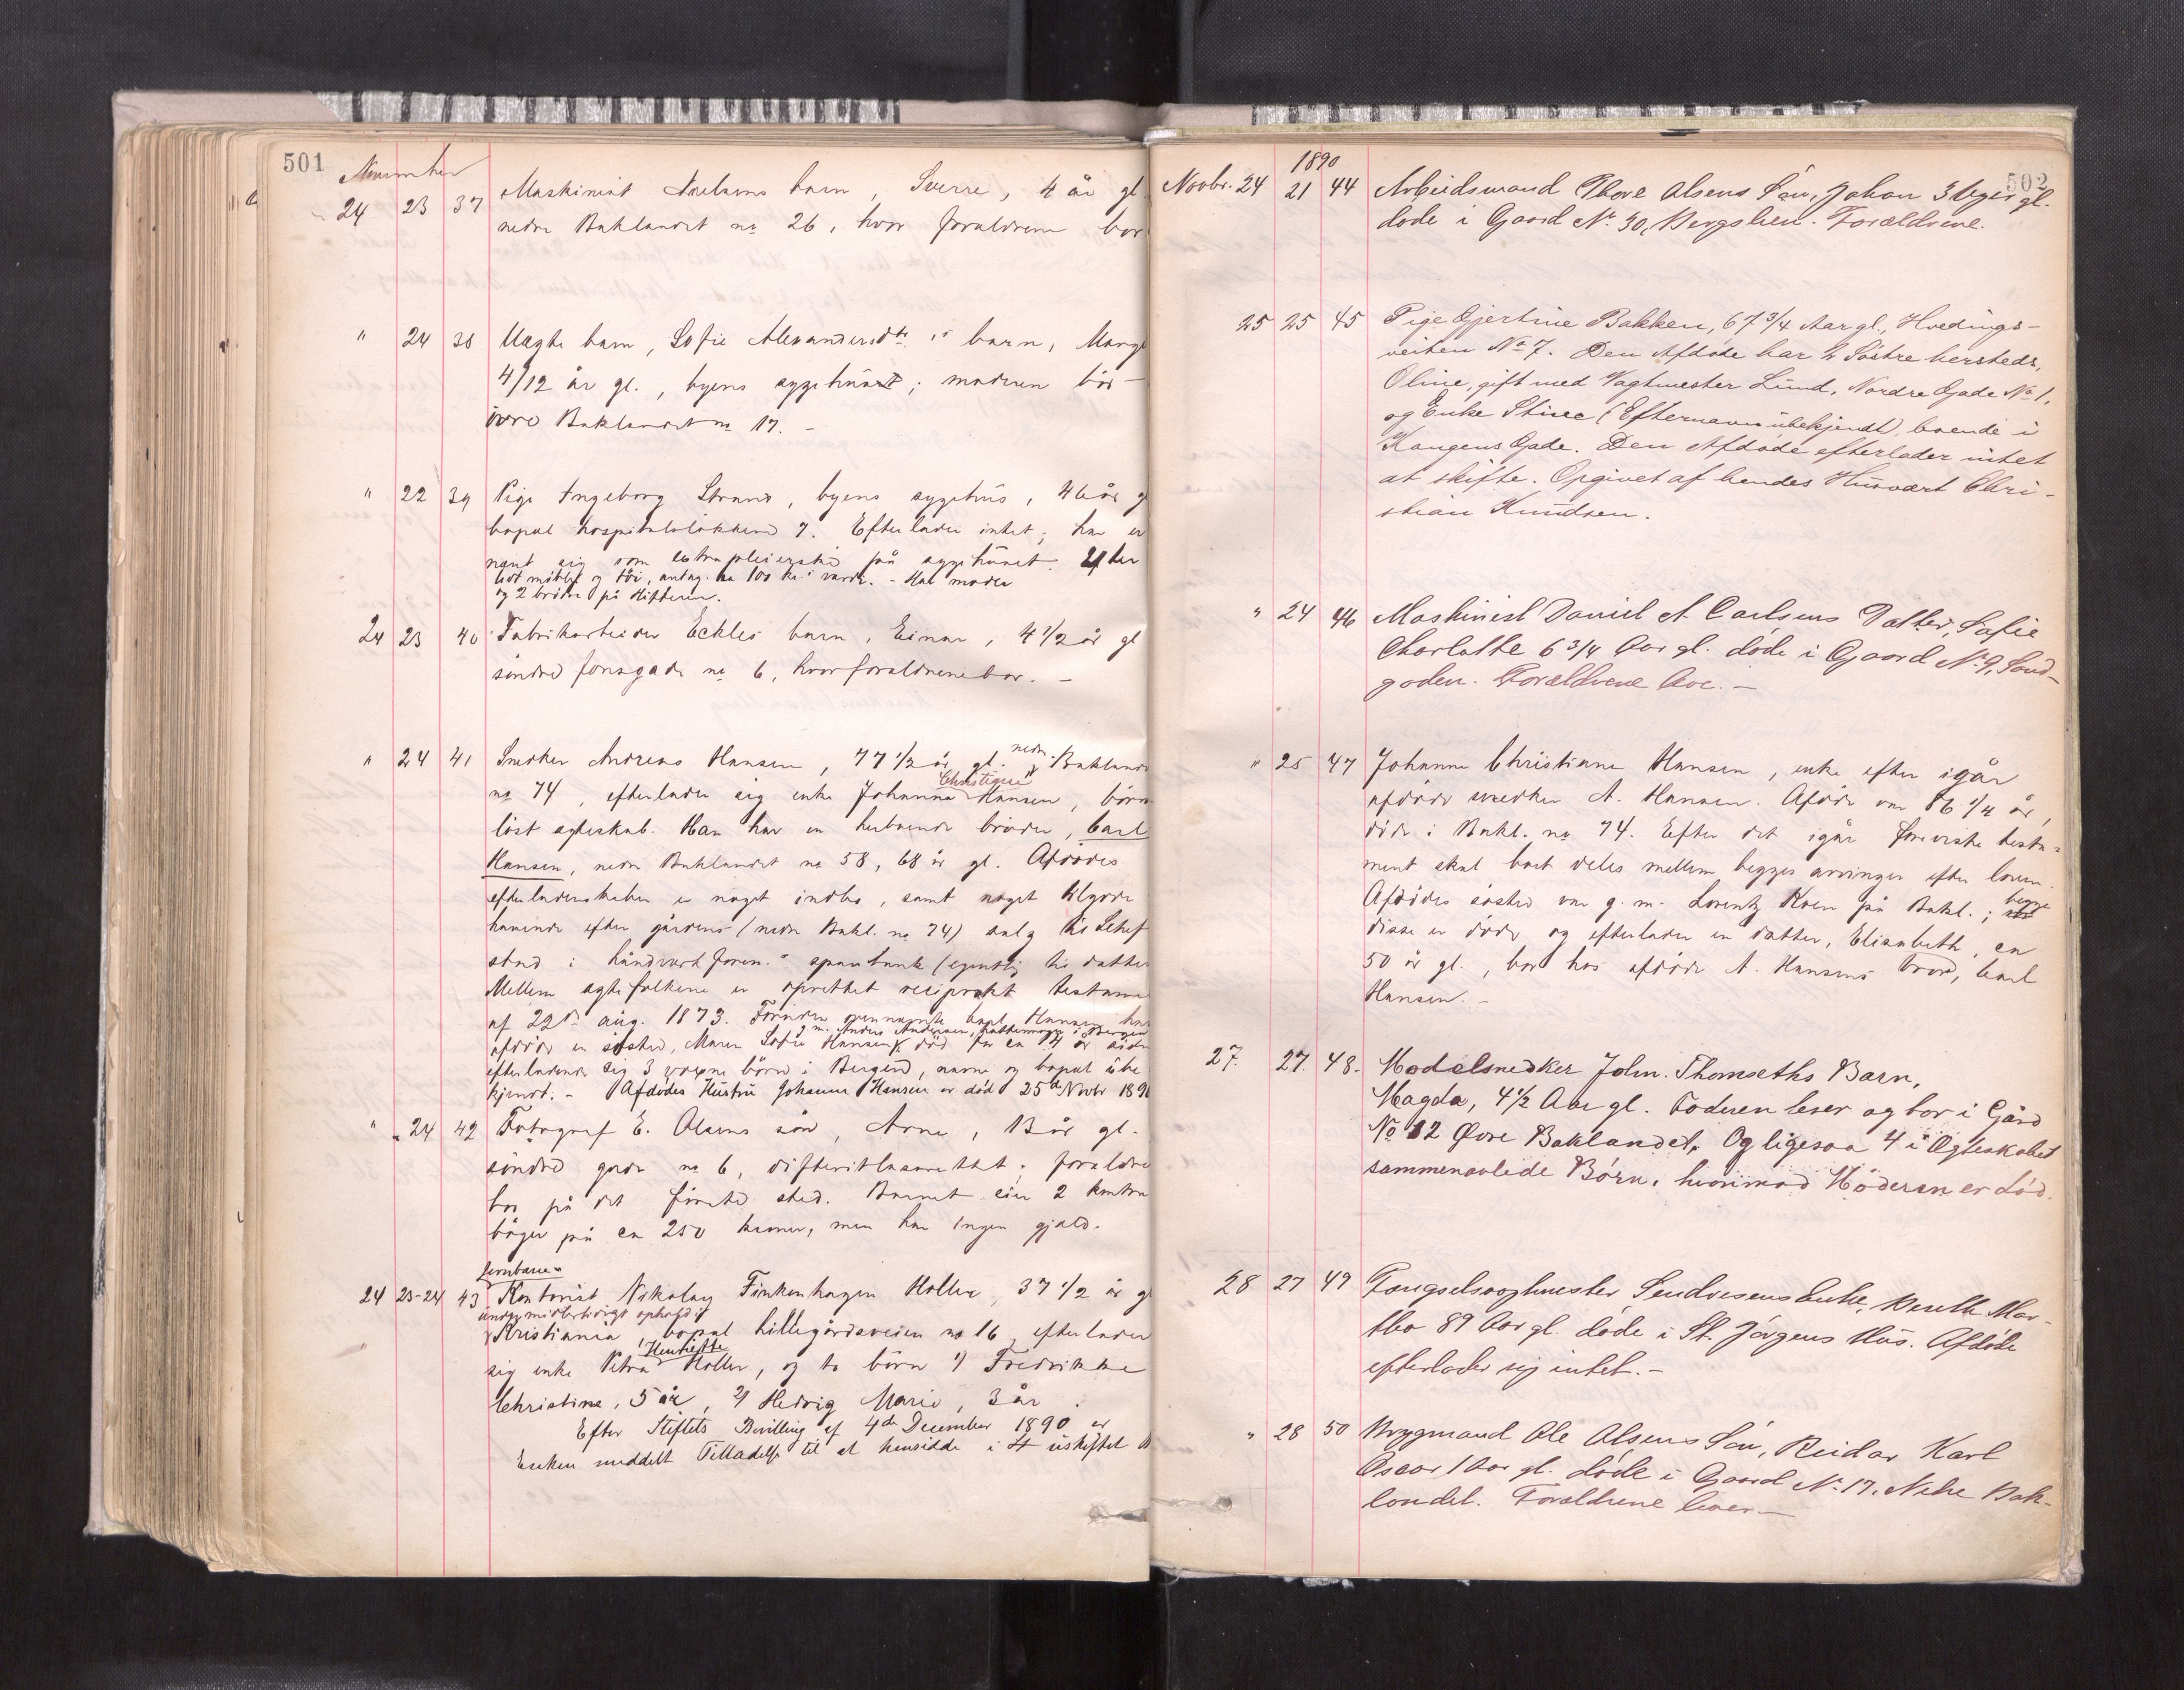 501
November
24 23 37 Maskinist Nielsens barn, Sverre, 4 år gl
nedre Baklandet no 26, hvor forældrene bor
" 24 38 Uægte barn, Sofie Alexandersdtr.s barn,
4/12 år gl., byens sygehus; moderen bor
øvre Baklandet no 17. -
" 22 39 Pige Ingeborg Strand, byens sygehus, 46 år g
bopæl hospitalsløkken 7. Efterlader intet; har er
næret sig som extra pleierske på sygehuset. Efter
lidt møbler og tøi, antag. ca 100 kr.s værdi. - Har moder
og 2 brødre på Hitteren.
24 23 40 Fabrikarbeider Eckles barn, Einar, 4 1/2 år gl
søndre gade no 6, hvor forældrene bor. -
" 24 41 Snedker Andreas Hansen, 77 1/2 år gl. nedre Bakland
no 74, efterlader sig enke Johanna Christine Hansen, børn
løst egteskab. Han har en herboende broder, Carl
Hansen, nedre Baklandet no 58, 68 år gl. Afdødes
efterladenskaber er noget indbo, samt noget tilgode
havende efter gårdens (nedre Bakl. no 74) salg
stad i håndverkforen.s sparebank (egentlig
Mellem egtefolkene er oprettet reciprokt testame
af 22de aug. 1873. Foruden ovennævnte Carl Hansen har
afdøde en søster, Maren Sofie Hansen, g. m. Anders Andersen, i Bergen, død for ca 14 år siden
efterladende sig 3 voxne børn i Bergen, navne og bopæl ube
kjendt. - Afdødes Hustru Johanna Hansen er død 25de Novbr 1890
" 24 42 Fotograf E. Olsens søn, Arne, 13 år gl.
søndre gade no 6, difteritlasarettet; forældre
bor på det første sted. Barnet eier 2 kontra
bøger på ca 250 kroner, men har ingen gjæld.
24 23-24 43 Jernbane-
Kontorist Nikolay Finkenhagen Møller, 37 1/2 år g
undgg midlertidigt ophold i
Kristiania, bopæl Lillegårdsveien no 16, efterlader
sig enke Petra Henriette Møller, og to børn 1) Fredrikke
Christine, 5 år, 2) Hedvig Marie, 3 år.
Efter Stiftets Bevilling af 4de December 1890 er
Enken meddelt Tilladelse til at hensidde i uskiftet B
502
1890
Novbr. 24 21 44 Arbeidsmand Thore Olsens Søn, Johan 3 Uger gl.
døde i Gaard No. 30, Bergslien. Forældrene.
25 25 45 Pige Gjertine Bakken, 67 3/4 Aar gl., Hvedings-
veiten No 7. Den Afdøde har 2 Søstre hersteds,
Oline, gift med Vagtmester Lund, Nordre Gade No 1,
og Enke Stine (Efternavn ubekjendt), boende i
Kongens Gade. Den Afdøde efterlader intet
at skifte. Opgivet af hendes Husvært Chri-
stian Knudsen.
" 24 46 Maskinist Daniel A Carlsens Datter, Sofie
Charlotte 6 3/4 Aar gl. døde i Gaard No. 9, Sand-
gaden. Forældrene leve. -
" 25 47 Johanne Christiane Hansen, enke efter igår
afdøde snedker A. Hansen. Afdøde var 86 1/4 år,
døde i Bakl. no 74. Efter det igår foreviste testa=
ment skal boet deles mellem begges arvinger efter loven.
Afdødes søster var g. m. Lorentz Koen på Bakl.; begge
disse er døde og efterlader en datter, Elisabeth, ca
50 år gl., bor hos afdøde A. Hansens broder, Carl
Hansen. -
27. 27. 48. Modelsnedker John. Thomseths Barn,
Magda, 4 1/2 Aar gl. Faderen lever og bor i Gård
No 12 Øvre Baklandet, Og ligesaa 4 i Ægteskabet
sammenavlede Børn, hvorimod Moderen er død.
28 27 49 Fængselsvagtmester Sendresens Enke, Bereth Mar-
tha 89 Aar gl. døde i St. Jørgens Hus. Afdøde
efterlader sig intet. -
" 28 50 Brygmand Ole Olsens Søn, Reidar Karl
Oscar 1 Aar gl. døde i Gaard No. 17, Nedre Bak-
landet. Forældrene lever -